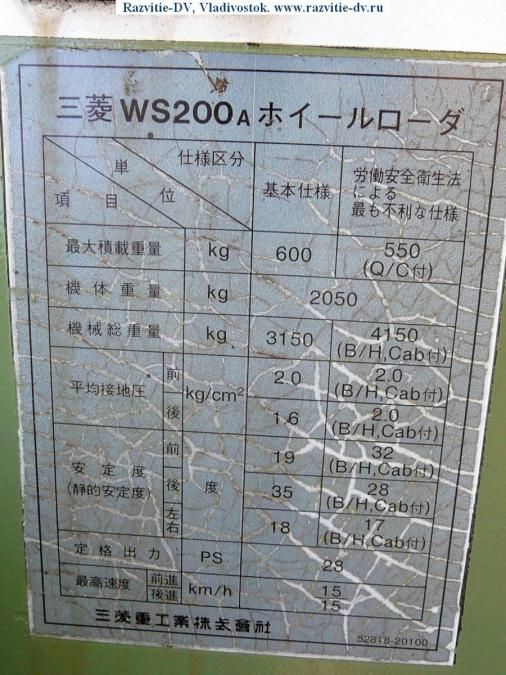 Razvitie-DV, Vladivostok. www.razvitie-dv.ru
三菱 WS200A ホイールローダ
仕様区分
単位
項目
基本仕様
労働安全衛生法
による
最も不利な仕様
最大積載重量 kg 600 550
(Q/C付)
機体重量 kg 2050
機械総重量 kg 3150 4150
(B/H,Cab付)
平均接地圧 kg/cm²
前 2.0 2.0
(B/H,Cab付)
後 1.6 2.0
(B/H,Cab付)
安定度
(静的安定度) 度
前 19 32
(B/H,Cab付)
後 35 28
(B/H,Cab付)
左右 18 17
(B/H,Cab付)
定格出力 PS 28
最高速度 km/h
前進 15
後進 15
三菱重工業株式會社
52818-20100